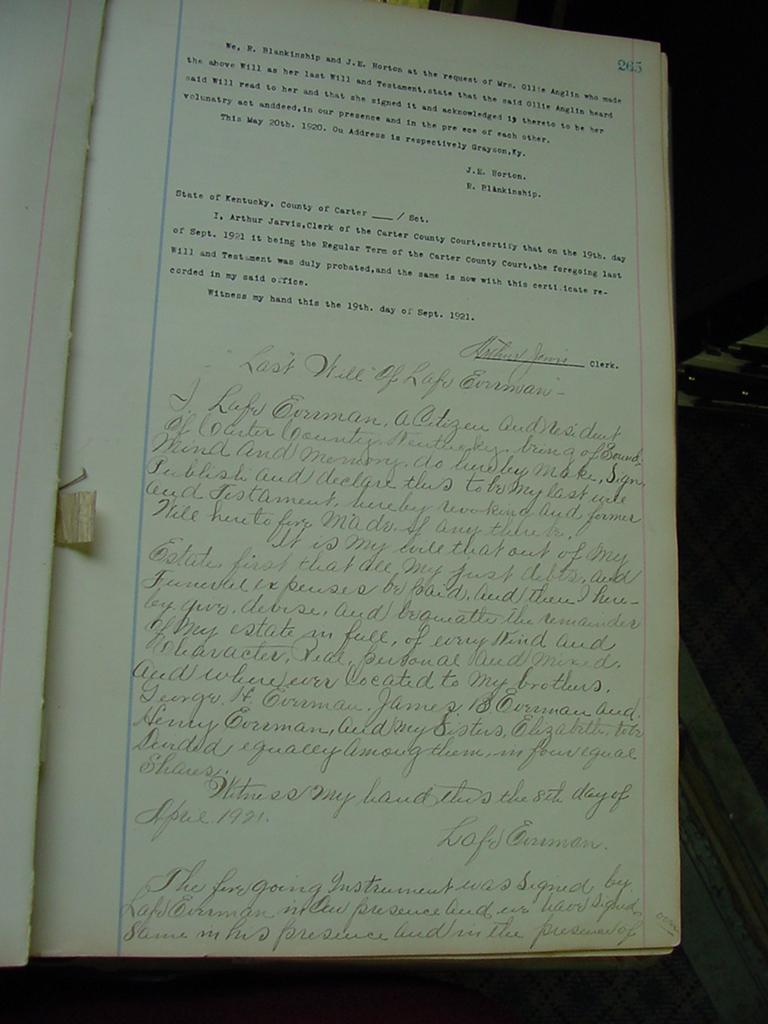 265
We, R. Blankinship and J.E. Horton at the request of Mrs. Ollie Anglin who made
the above Will as her last Will and Testament,state that the said Ollie Anglin heard
said Will read to her and that she signed it and acknowledged is thereto to be her
volunatry act anddeed,in our presence and in the pre ece of each other.
This May 20th. 1920. Ou Address is respectively Grayson,Ky.
J.E. Horton.
R. Blankinship.
State of Kentucky, County of Carter ___/ Sct.
I, Arthur Jarvis,Clerk of the Carter County Court,certify that on the 19th. day
of Sept. 1921 it being the Regular Term of the Carter County Court,the foregoing last
Will and Testament was duly probated,and the same is now with this certificate re-
corded in my said office.
Witness my hand this the 19th. day of Sept. 1921.
Arthur Jarvis Clerk.
"Last Will" Of Lafe Everman -
I, Lafe Everman, a Citizen and resident
Of Carter County, Kentucky, being of Sound
Mind and Memory, do hereby Make, Sign,
Publish and declare this to be My last will
and Testament, hereby revoking and former
Will heretofore Made, if any there be.
It is My will that out of My
Estate, first that all My just debts, and
Funeral expenses be paid, and then I here-
by give, devise, and bequeath the remainder
of My estate in full, of every Kind and
Character, Real, personal and Mixed,
and where ever located to My brothers,
George H. Everman, James B Everman and
Henry Everman, and My Sisters, Elizabeth, to be
Divided equally among them, in four equal
Shares,
Witness My hand this the 8th day of
April 1921.
Lafe Everman.
The fore going Instrument was Signed by
Lafe Everman in Our presence and we have Signed
Same in his presence and in the presence of